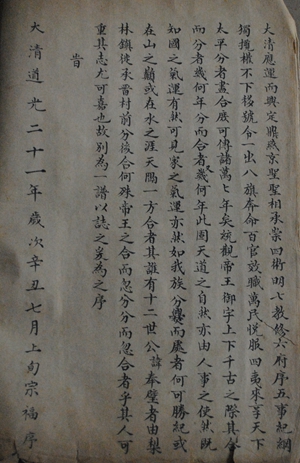 大清應運而興定鼎燕京聖聖相承崇四術明七教修六府序五事紀綱
獨攬權不下移號令一出八旗奔命百官效職萬民悅服四夷來享天下
太平分者盡合底可傳諸萬七年矣統觀帝王御宇上下千古之際其合
而分者幾何年分而合者幾何年此固天道之自然亦由人事之使然既
知國之氣運有然可見家之氣運亦然如我族分爨而處者何可勝紀或
在山之巔或在水之涯天賜一方合者其誰有十二世公諱奉璧者由梨
林鎮徙承普村前分後合何殊帝王之合而忽分分而忽合者乎其人可
重其志尤可嘉也故別為一譜以誌之爰為之序
旹
大清道光二十一年歲次辛丑七月上旬宗福序